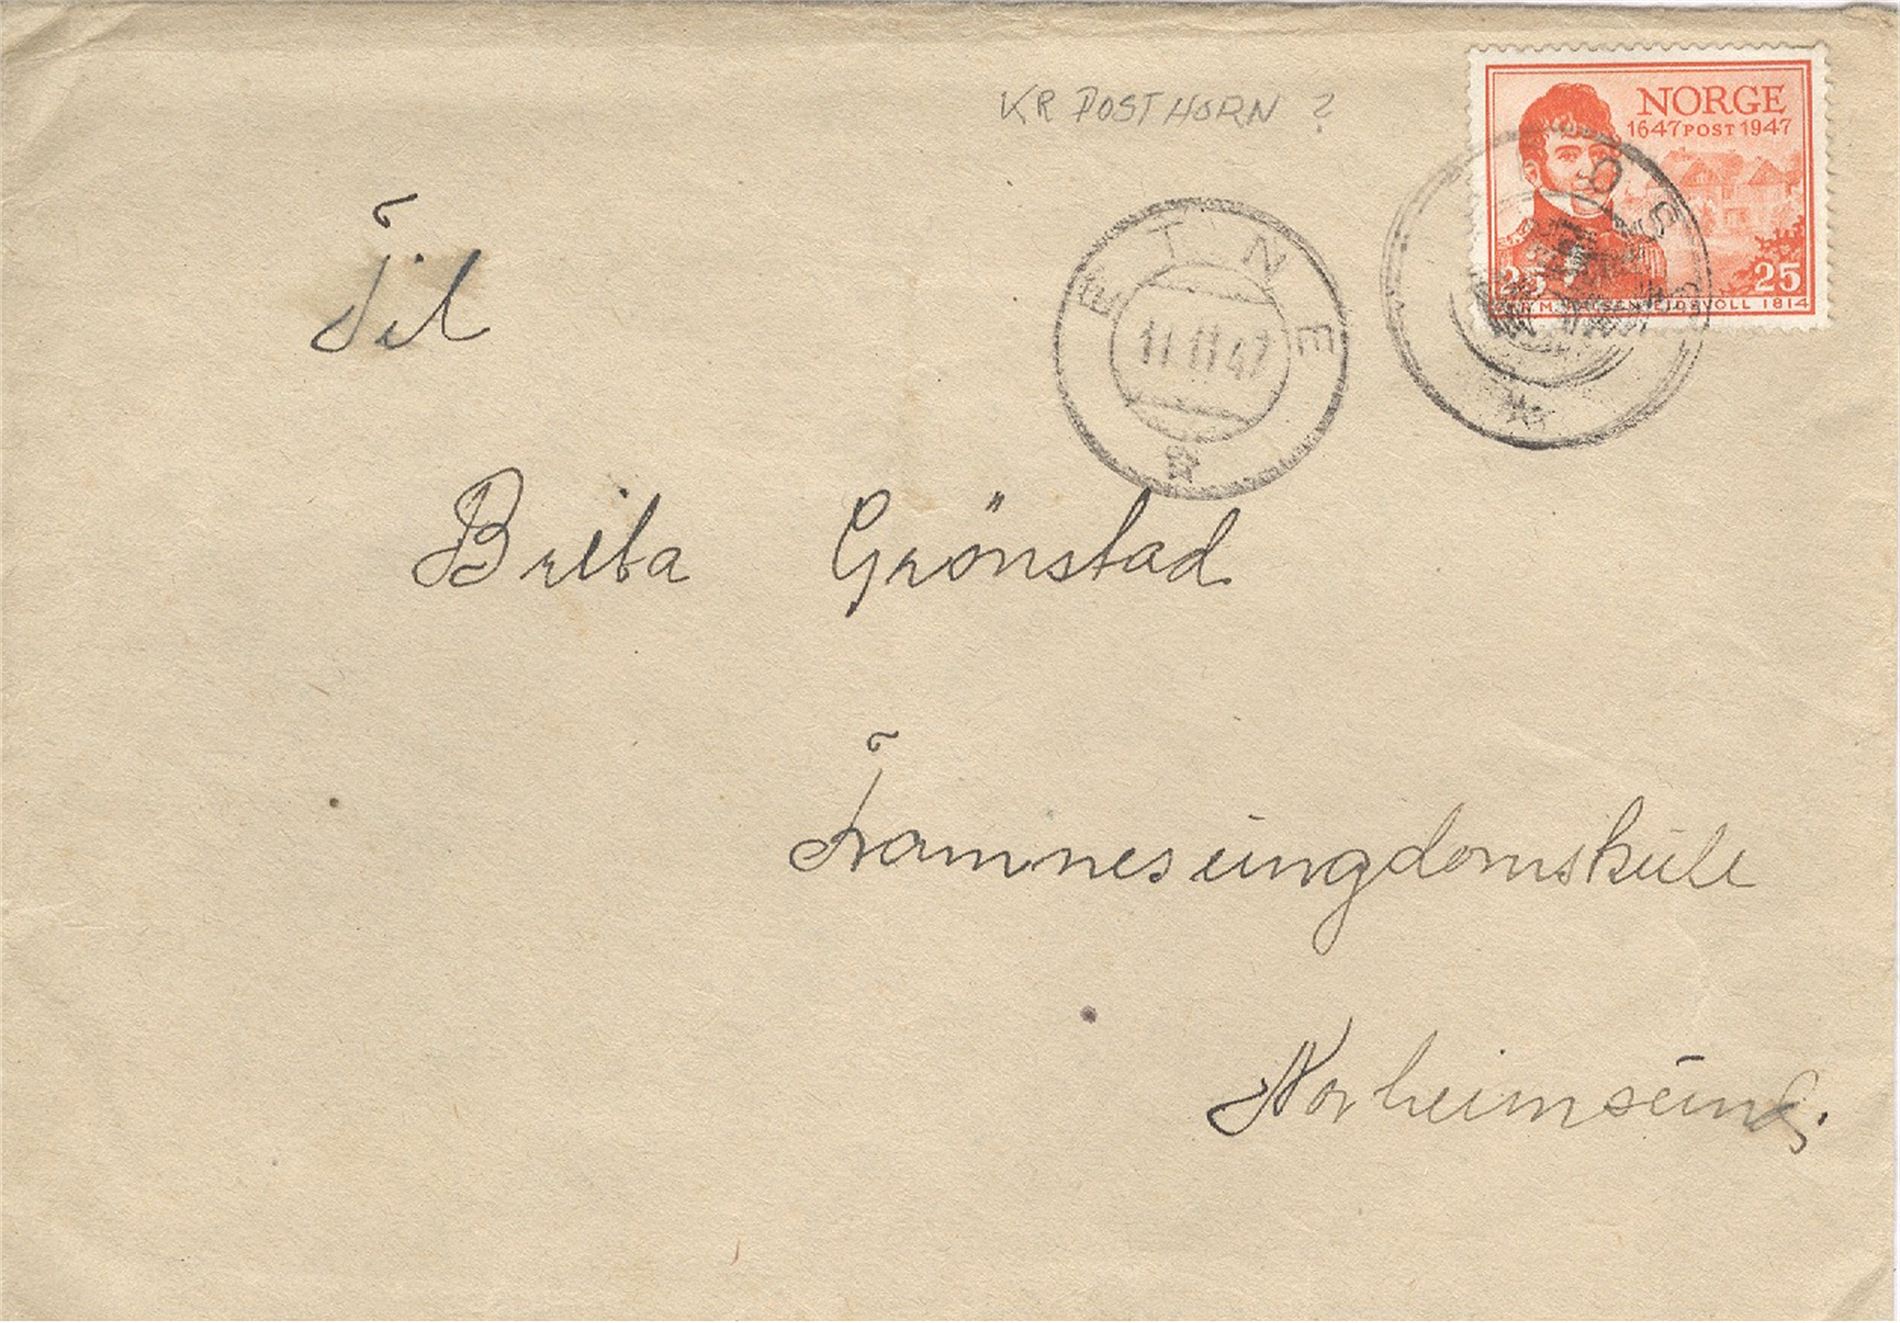 KR POSTHORN ?
NORGE
1647 POST 1947
25 25
EIDSVOLL 1814
ETNE
11 11 47
Til
Brita Grönstad
Framnes ungdomskule
Norheimsund.